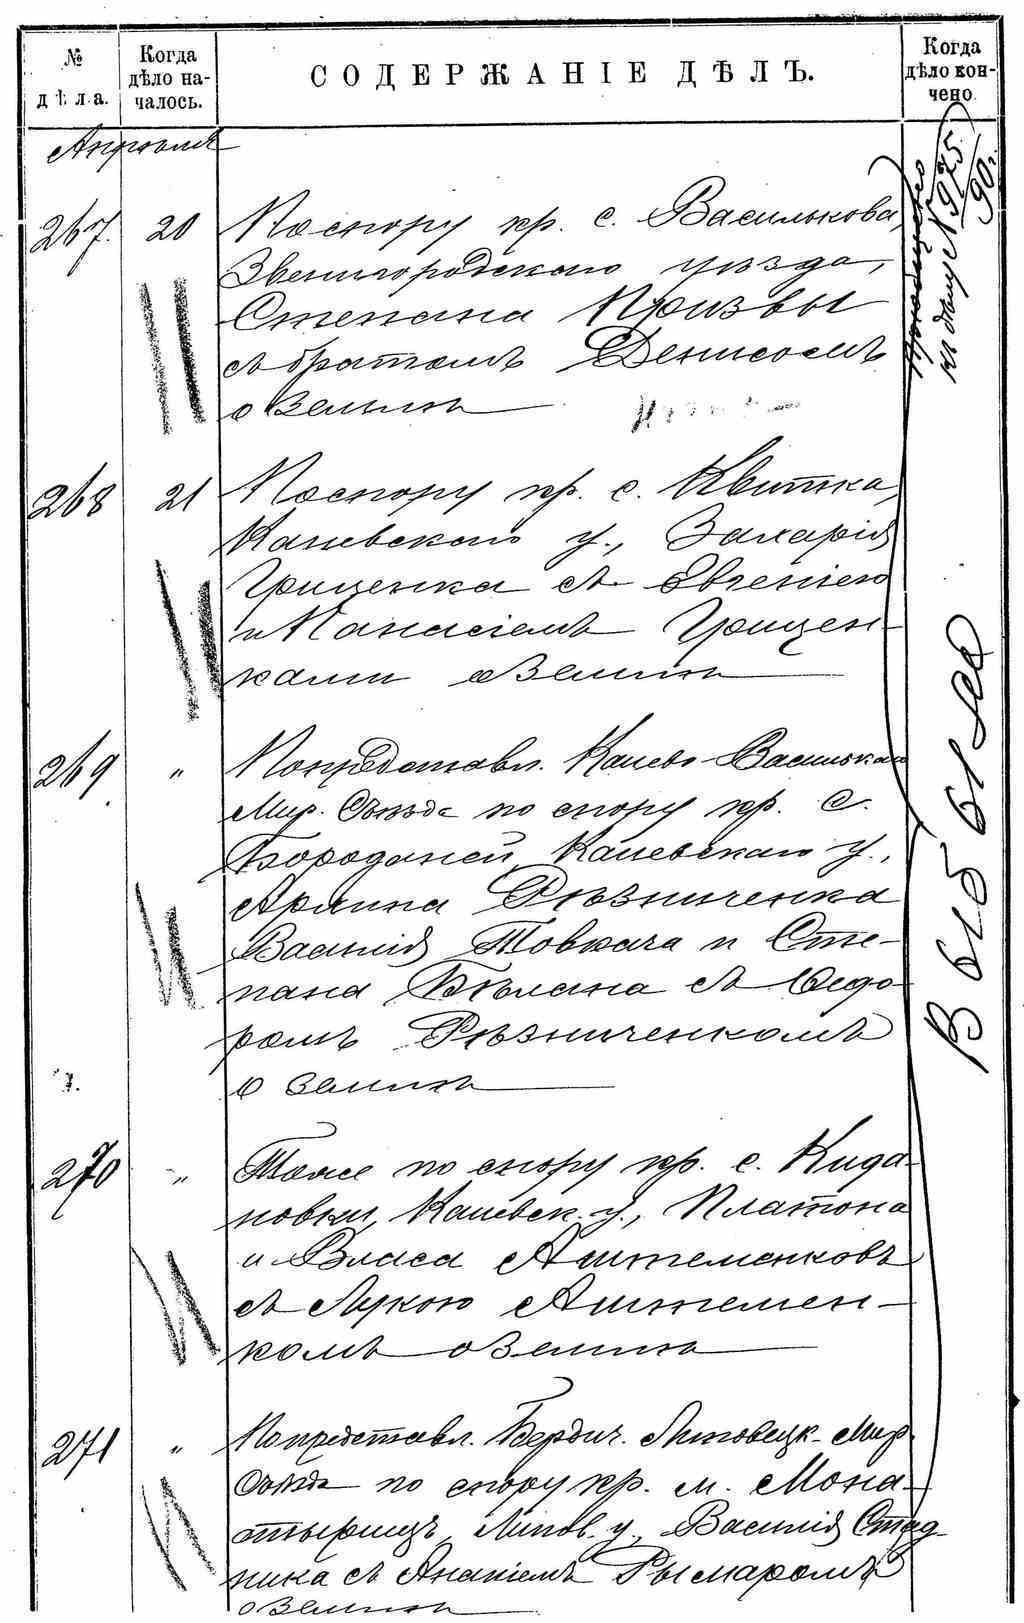 № дѣла.
Когда дѣло началось.
СОДЕРЖАНІЕ ДѢЛЪ.
Когда дѣло кончено.
Апрѣля
267. 20 По спору кр. с. Василькова,
Звенигородскаго уѣзда,
Степана Призвы
съ братомъ Денисомъ
о землѣ
къ дѣлу № 975/90 г.
268 21 По спору кр. с. Квитка,
Каневскаго у., Захарія
Гриценка съ Евгеніею
и Панасіемъ Грицен-
ками о землѣ
Выбыло
269 " По представл. Канево-Васильков
Мир. Съѣзда по спору кр. с.
Бородяней, Каневскаго у.,
Рѣзниченка
Василія Товкача и Сте-
пана Бѣлана съ Ѳедо-
ромъ Рѣзниченкомъ
о землѣ
270 " Тоже по спору кр. с. Кида-
новки, Каневск. у., Платона
и Власа Антеменковъ
съ Лукою Антемен-
комъ о землѣ
271 " По представл. Бердич. Липовецк. Мир.
Съѣзда по спору кр. м. Мона-
стырищъ, Липов. у., Василія Стад-
ника съ Ананіемъ Рымаромъ
о землѣ